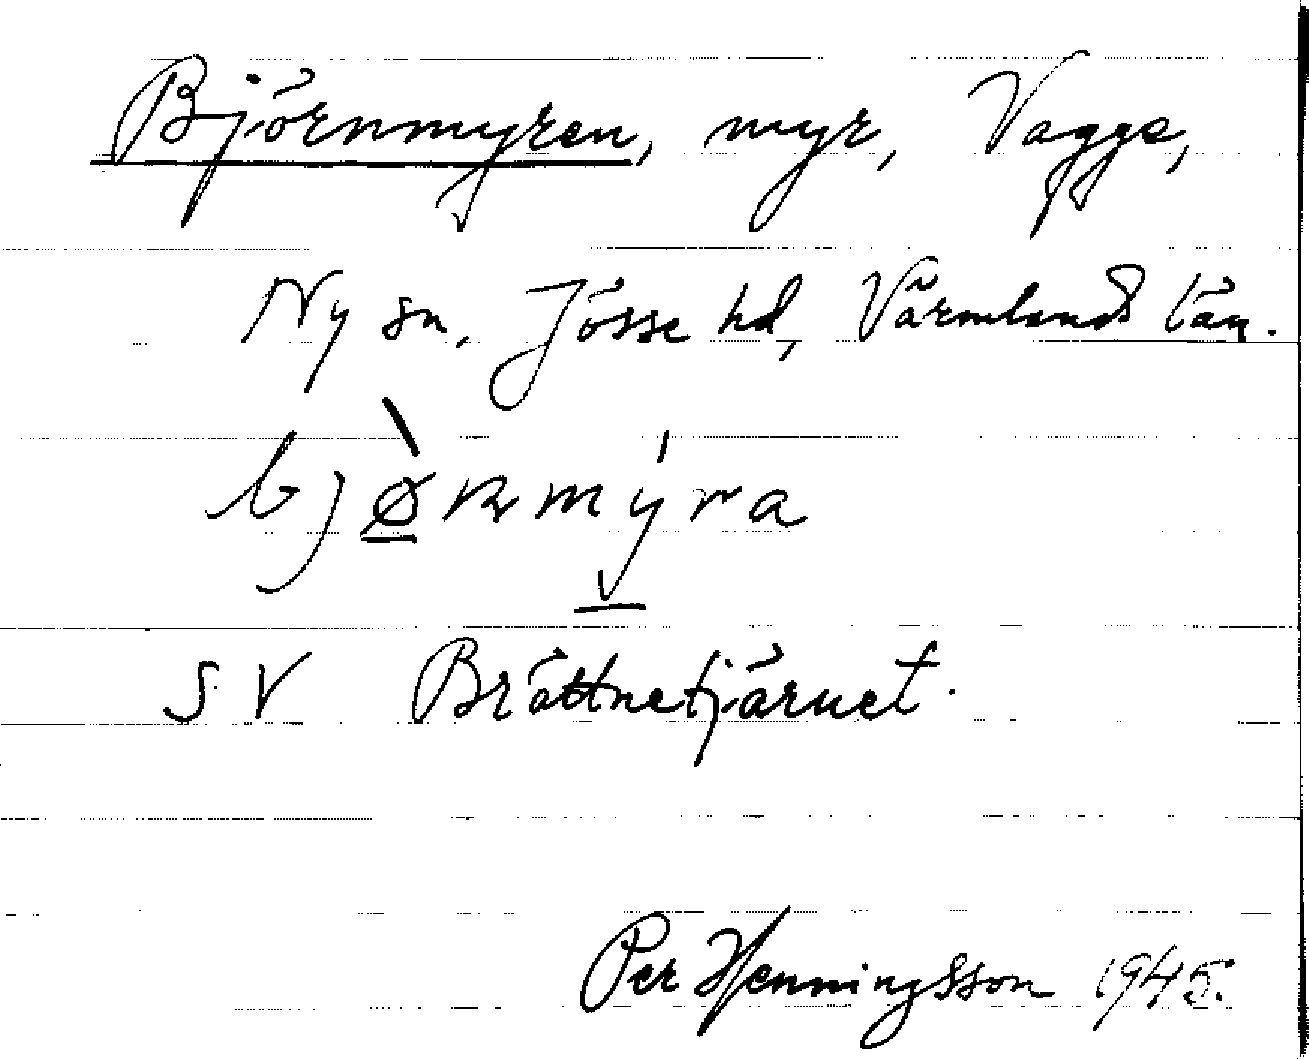 Björnmyren, myr, Vagge,
Ny sn, Jösse hd, Värmlands län.
bjø̀ṇmýra
SV Bråttnetjärnet.
Per Henningsson 1945.